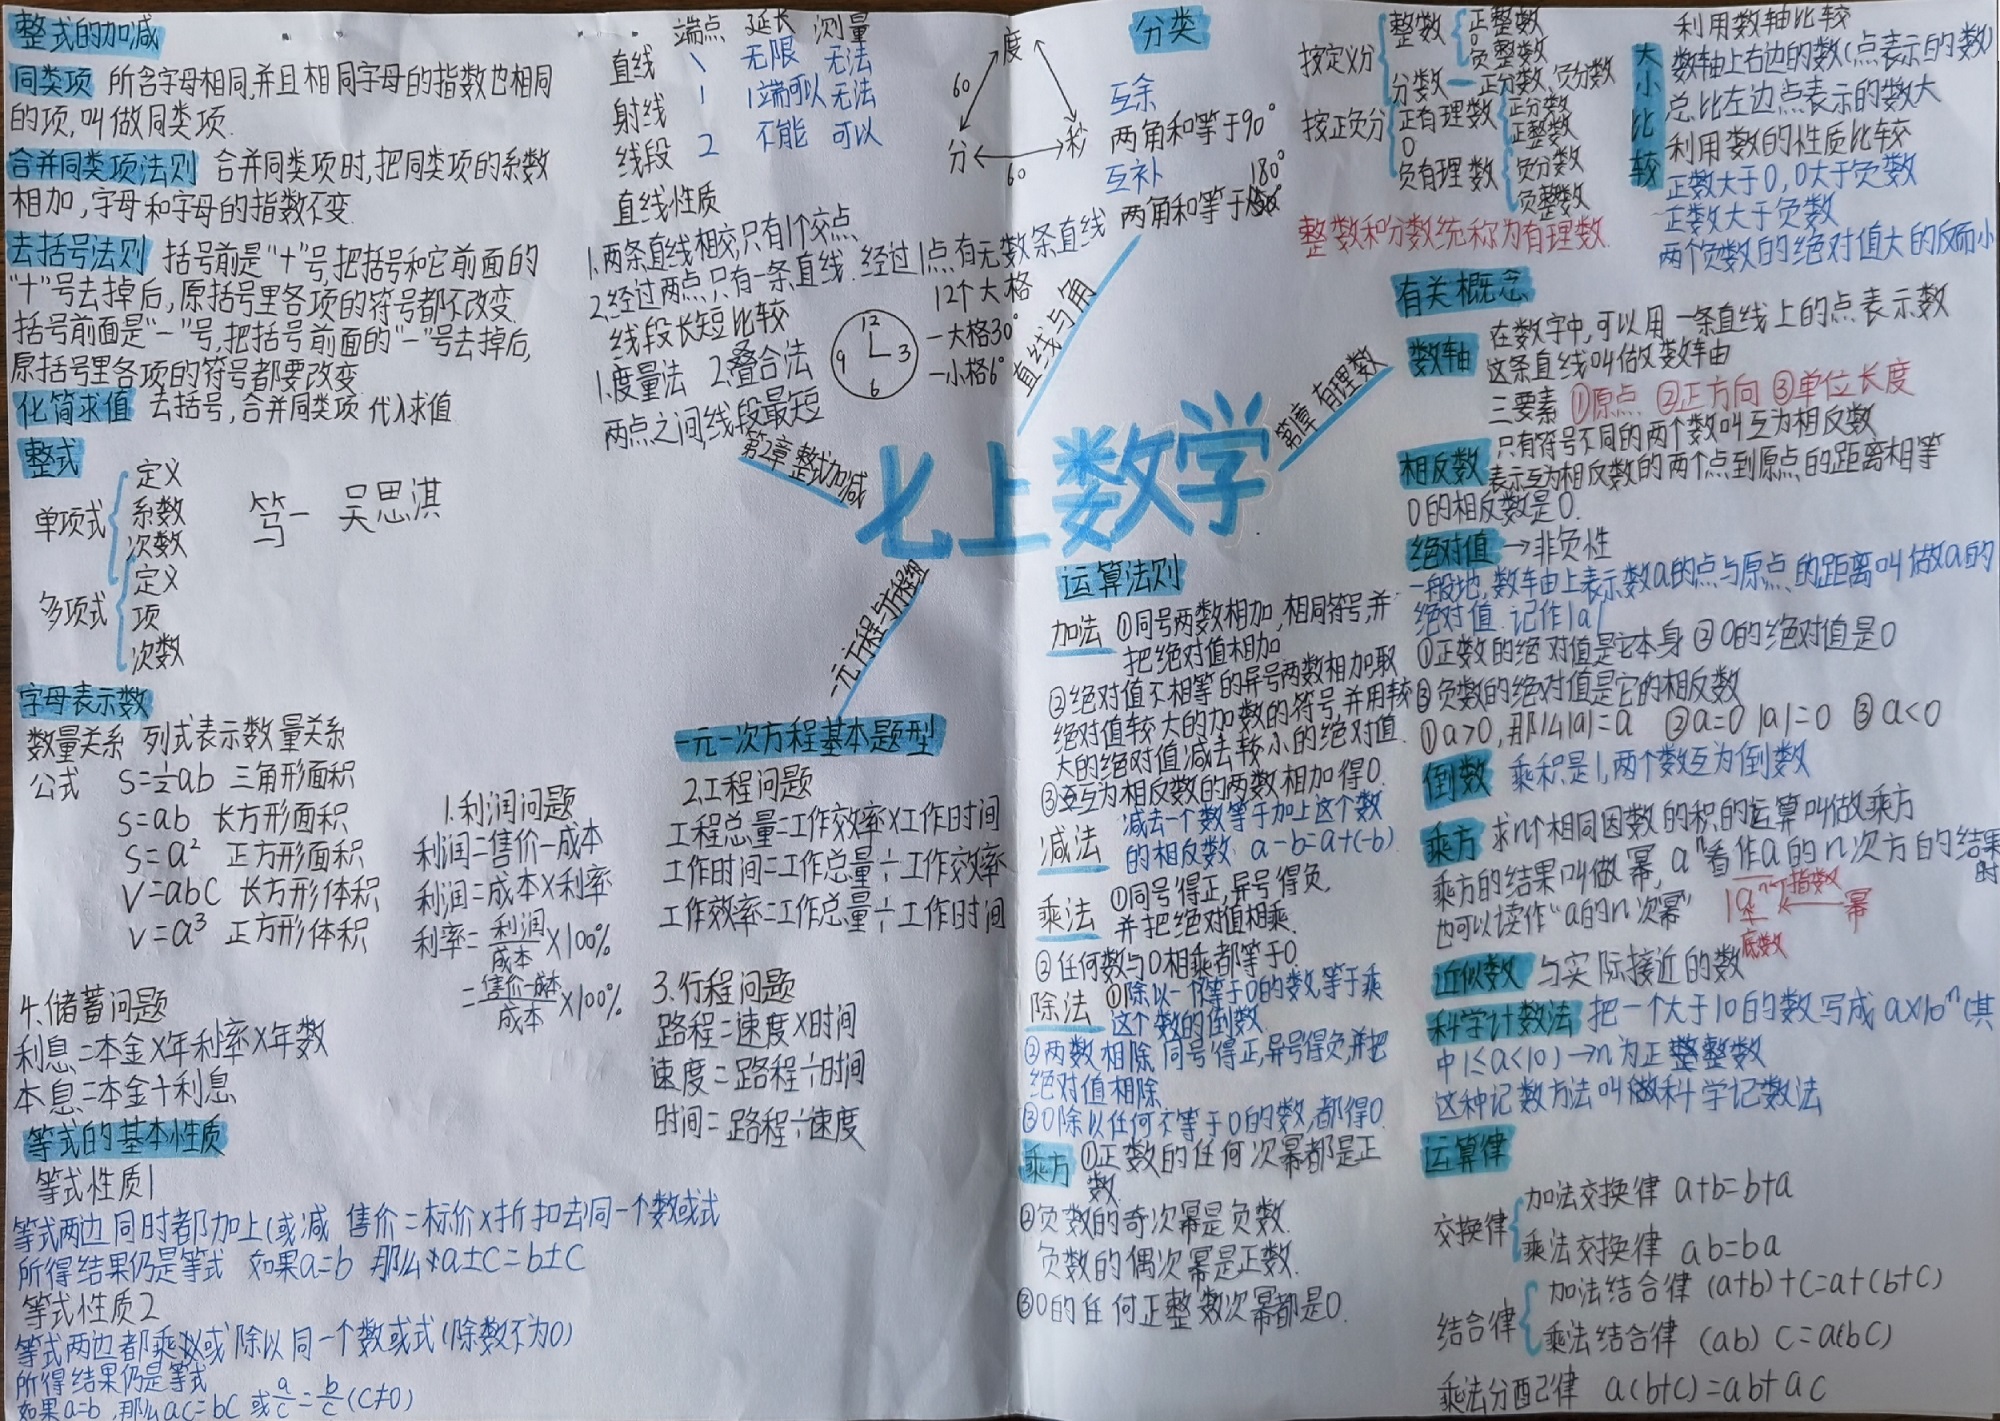 整式的加减
同类项 所含字母相同,并且相同字母的指数也相同
的项,叫做同类项.
合并同类项法则 合并同类项时,把同类项的系数
相加,字母和字母的指数不变.
去括号法则 括号前是“十”号,把括号和它前面的
“十”号去掉后,原括号里各项的符号都不改变.
括号前面是“一”号,把括号前面的“一”号去掉后,
原括号里各项的符号都要改变
化简求值 去括号,合并同类项 代入求值
整式
单项式
定义
系数
次数
多项式
定义
项
次数
笃一 吴思淇
字母表示数
数量关系 列式表示数量关系
公式 S=½ab 三角形面积
S=ab 长方形面积
S=a² 正方形面积
V=abc 长方形体积
V=a³ 正方形体积
端点 延长 测量
直线 \ 无限 无法
射线 1 1端可以 无法
线段 2 不能 可以
直线性质
1.两条直线相交,只有1个交点.
2.经过两点,只有一条直线.经过1点有无数条直线
线段长短比较
1.度量法 2.叠合法
两点之间线段最短
12
9 3
6
12个大格
一大格30°
一小格6°
度
60
分 秒
60
分类
互余
两角和等于90°
互补
两角和等于180°
直线与角
第2章 整式加减
七上数学
第1章 有理数
一元一次方程基本题型
1.利润问题
利润=售价-成本
利润=成本×利率
利率=利润/成本×100%
=售价-成本/成本×100%
2.工程问题
工程总量=工作效率×工作时间
工作时间=工作总量÷工作效率
工作效率=工作总量÷工作时间
3.行程问题
路程=速度×时间
速度=路程÷时间
时间=路程÷速度
4.储蓄问题
利息=本金×年利率×年数
本息=本金+利息
等式的基本性质
等式性质1
等式两边同时都加上(或减 售价=标价×折扣去)同一个数或式
所得结果仍是等式 如果a=b 那么a±c=b±c
等式性质2
等式两边都乘或除以同一个数或式(除数不为0)
所得结果仍是等式
如果a=b,那么ac=bc 或a/c=b/c(c≠0)
按定义分
整数
正整数
0
负整数
分数一正分数、负分数
按正负分
正有理数
正分数
正整数
0
负有理数
负分数
负整数
整数和分数统称为有理数.
大小比较
利用数轴比较
数轴上右边的数(点表示的数)
总比左边点表示的数大
利用数的性质比较
正数大于0,0大于负数
正数大于负数
两个负数的绝对值大的反而小
有关概念
数轴 在数字中,可以用一条直线上的点表示数
这条直线叫做数轴
三要素 ①原点 ②正方向 ③单位长度
相反数 只有符号不同的两个数叫互为相反数
表示互为相反数的两个点到原点的距离相等
0的相反数是0.
绝对值→非负性
一般地,数轴上表示数a的点与原点的距离叫做a的
绝对值.记作|a|
①正数的绝对值是它本身 ②0的绝对值是0
③负数的绝对值是它的相反数
①a>0,那么|a|=a ②a=0 |a|=0 ③a<0
倒数 乘积是1,两个数互为倒数
乘方 求n个相同因数的积的运算叫做乘方
乘方的结果叫做幂,aⁿ看作a的n次方的结果时
也可以读作“a的n次幂” aⁿ 指数 幂
底数
近似数 与实际接近的数
科学计数法 把一个大于10的数写成a×10ⁿ(其
中1≤a<10)→n为正整整数
这种记数方法叫做科学记数法
运算律
交换律
加法交换律 a+b=b+a
乘法交换律 ab=ba
结合律
加法结合律 (a+b)+c=a+(b+c)
乘法结合律 (ab)c=a(bc)
乘法分配律 a(b+c)=ab+ac
运算法则
加法 ①同号两数相加,相同符号,并
把绝对值相加
②绝对值不相等的异号两数相加取
绝对值较大的加数的符号并用较
大的绝对值减去较小的绝对值.
③互为相反数的两数相加得0.
减法 减去一个数等于加上这个数
的相反数 a-b=a+(-b)
乘法 ①同号得正,异号得负,
并把绝对值相乘.
②任何数与0相乘都等于0.
除法 ①除以一个不等于0的数,等于乘
这个数的倒数
②两数相除,同号得正,异号得负,并把
绝对值相除
③0除以任何不等于0的数,都得0.
乘方 ①正数的任何次幂都是正
数
②负数的奇次幂是负数.
负数的偶次幂是正数.
③0的任何正整数次幂都是0.